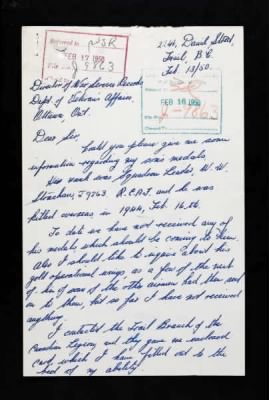 Referred to NSR
FEB 17 1950
J 9263
FEB 16 1950
J-9263
Trail, B.C.
Feb 13/50.
Director of War Service Records
Dept. of Veterans Affairs,
Ottawa, Ont.
Dear Sir,
Could you please give me some
information regarding my son's medals,
His rank was Squadron Leader, W. W.
J9263. R.C.A.F. and he was
killed overseas in 1944, Feb. 15-16.
To date we have not received any of
his medals which should be coming to him.
Also I should like to inquire about his
gold operational wings as a few of the next
of kin of some of the other airmen had them sent
on to them, but so far I have not received
anything.
I contacted the Trail Branch of the
Canadian Legion, and they gave me enclosed
card, which I have filled out to the
best of my ability.